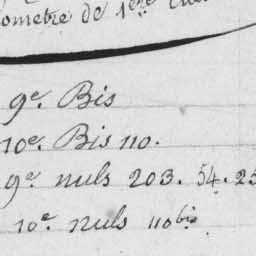 ometre de 1ere
9e. Bis
10e. Bis 110.
9e nuls 203. 54. 25
10e nuls 110bis